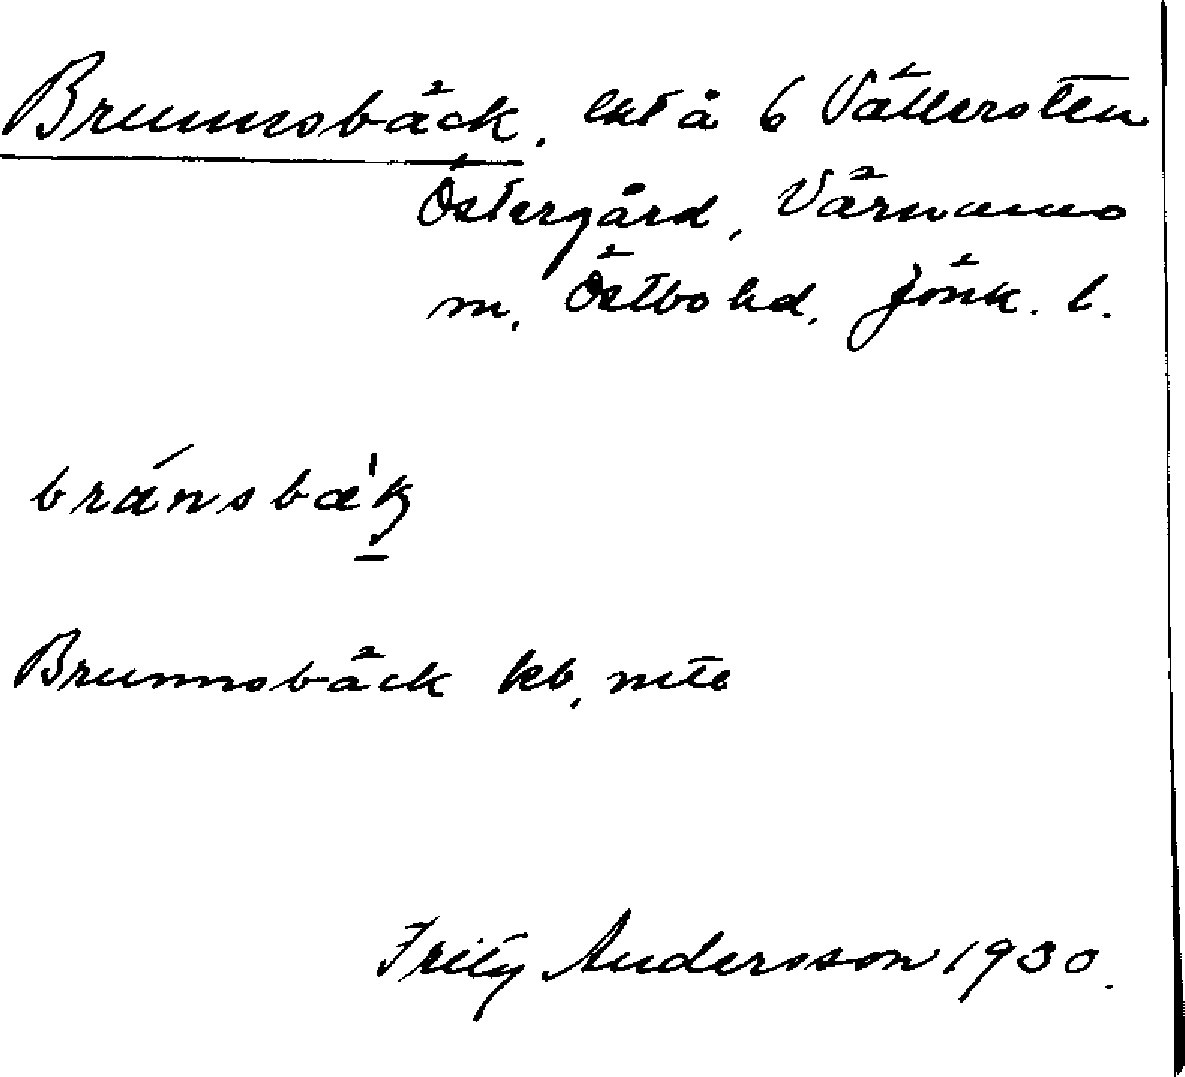 Brunnsbäck, lht å 6 Vällersten
Östergård, Värnamo
m. Östbo hd, Jönk. l.
bránsbæ̀k
Brunnsbäck kb, mtb
Fritz Andersson 1930.